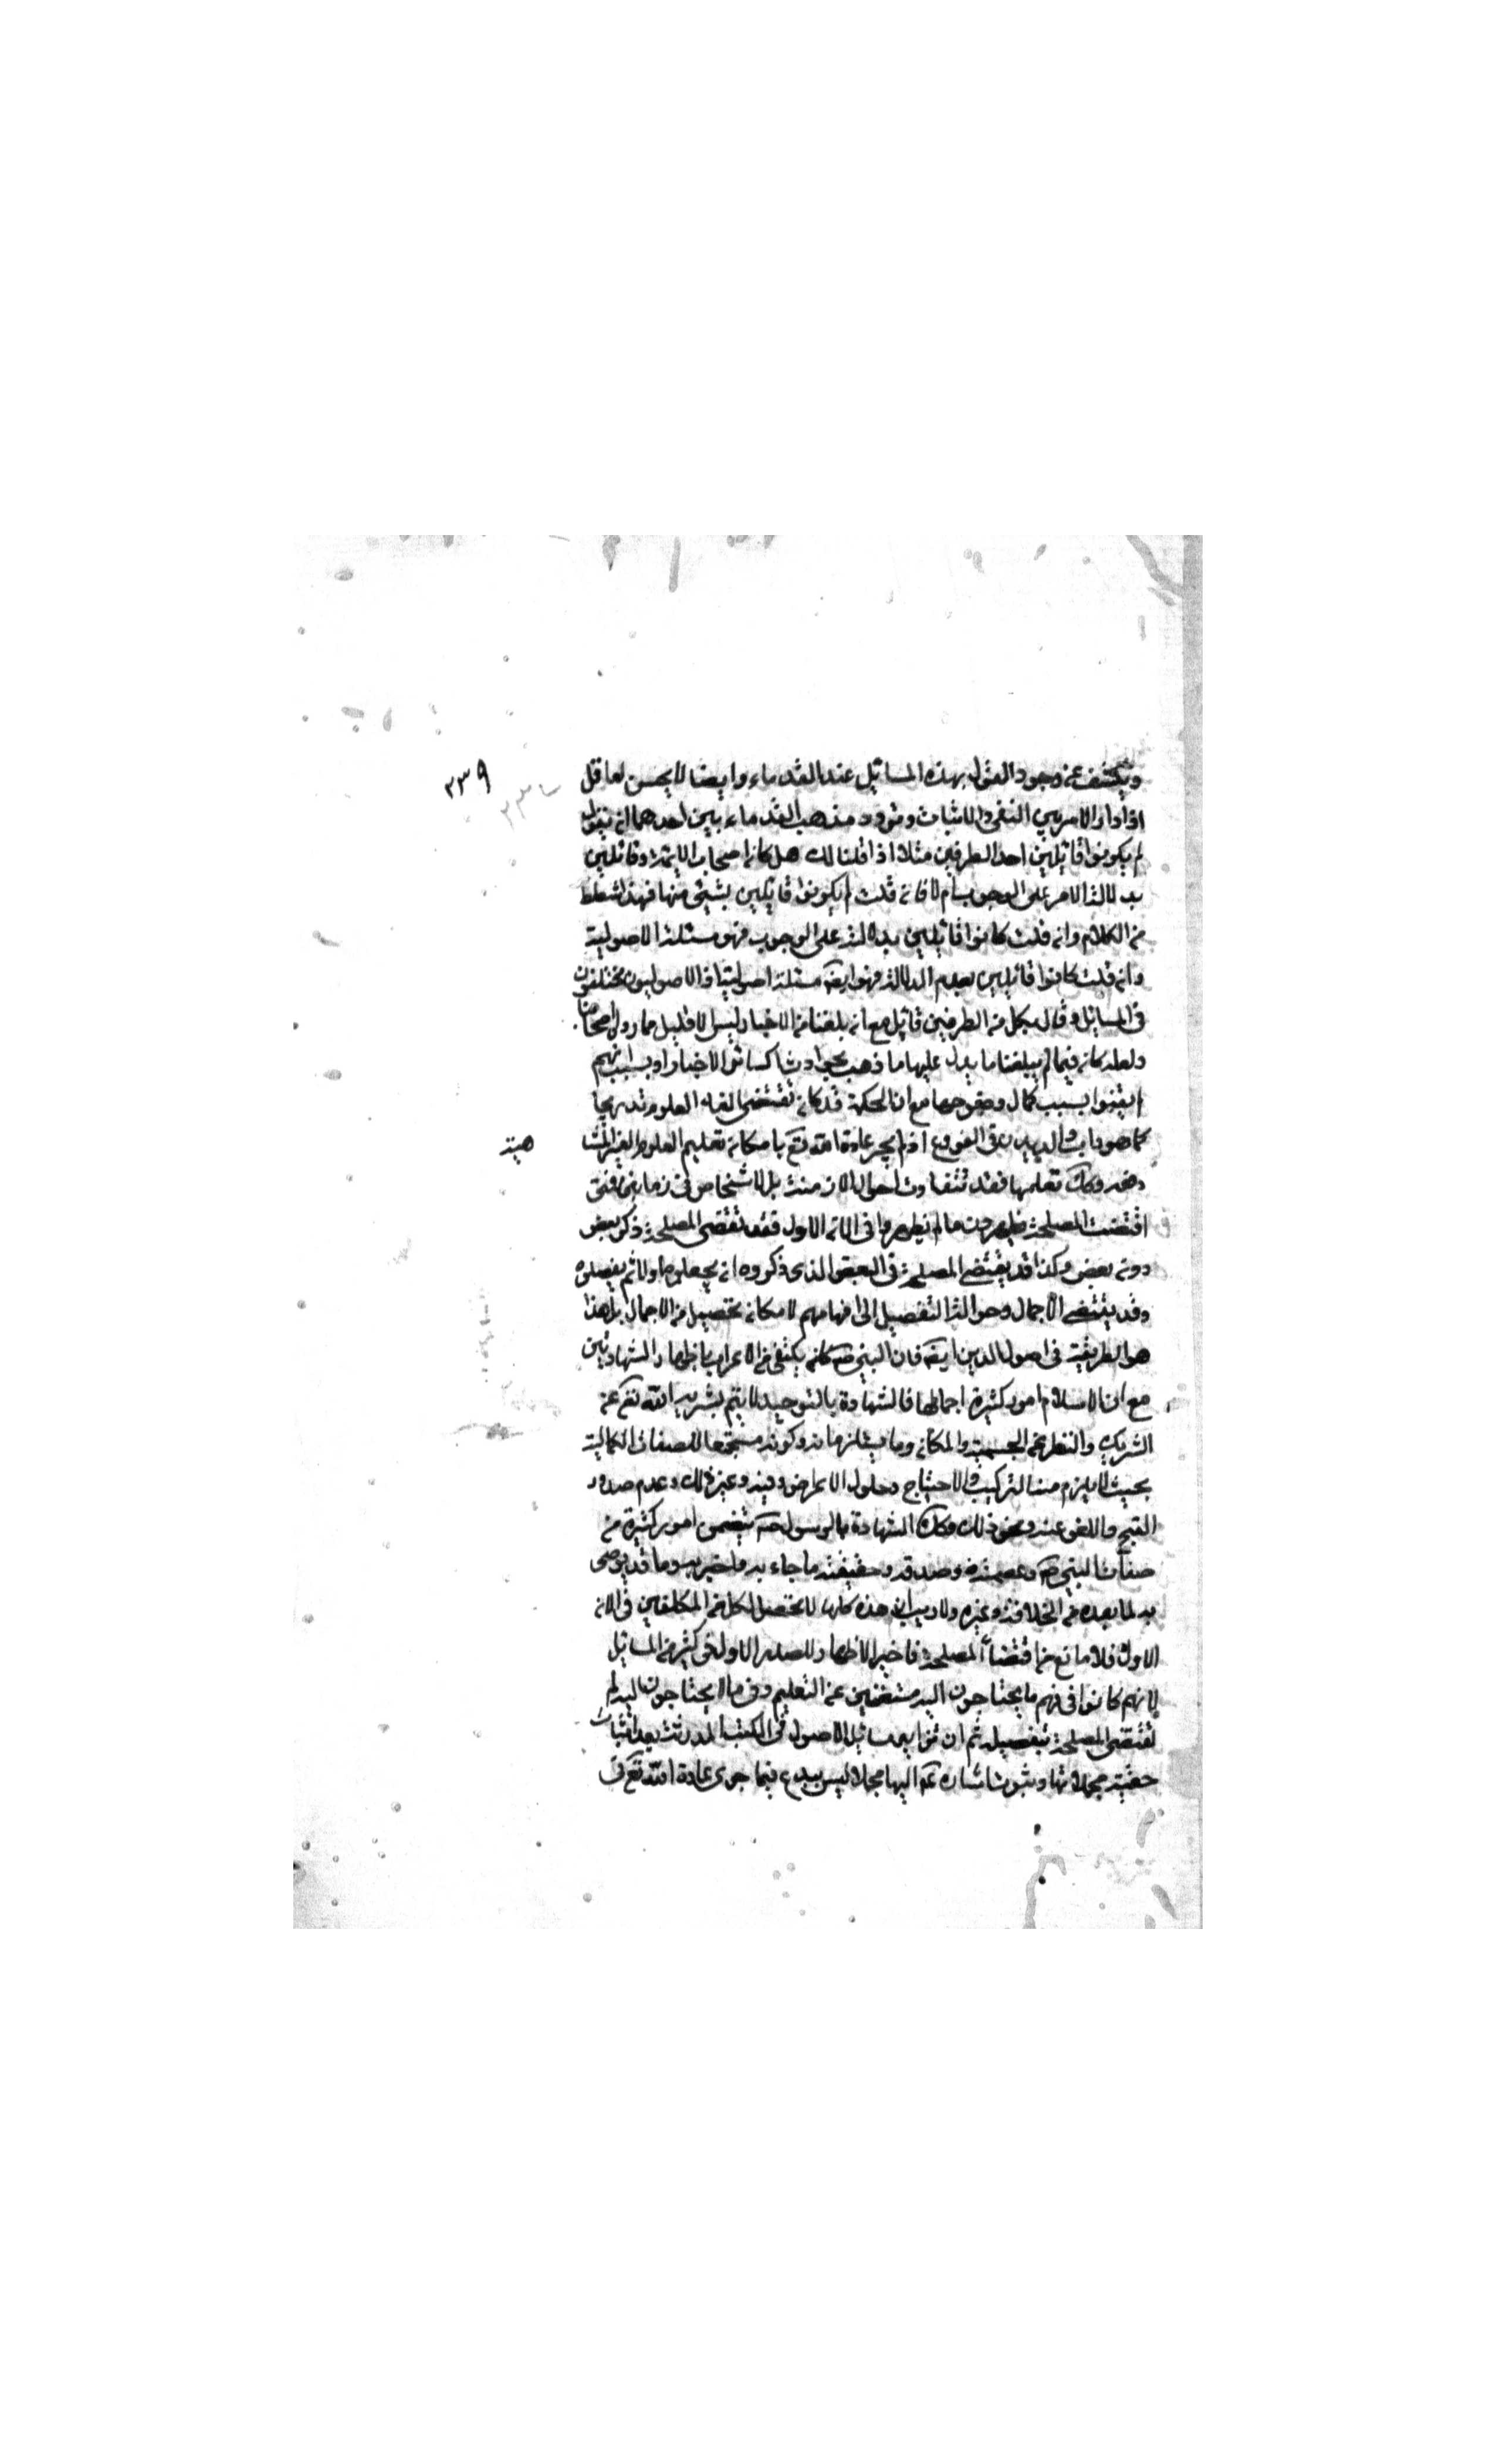 ويكشف عن وجود القول بهذه المسائل عند القدماء وايضا لا يحسن لعاقل
٢٣٩
اذا دار الامر بين النفى والاثبات وتردد مذهب القدماء بين احدهما ان يقول
لم يكونوا قائلين احد الطرفين مثلا اذا قلنا لك هل كان اصحاب الائمة قائلين
بدلالة الامر على الوجوب ام لا فان قلت لم يكونوا قائلين بشيئ منها فهذا شطط
من الكلام وان قلت كانوا قائلين بدلالته على الوجوب فهو مسئلة الاصولية
وان قلت كانوا قائلين بعدم الدلالة فهو ايضه مسئلة اصولية اذ الاصوليون مختلفون
فى المسايل وقال بكل من الطرفين قائل مع ان بلغنا من الاخبار ليس الا قليل مما رواه اصحابنا
ولعله كان فيما لم يبلغنا ما يدل عليها ما ذهب بحوادث كسائر الاخبار او بسبب انهم
لم يقنوا بسبب كمال وضوحها مع ان الحكمة قد كان تقتضى القاء العلوم تدريجا
كما هو داب والديدن فى الفروع اذ لم يجر عادة الله تع بامكان تعليم العلوم الغير المتنا
هية
دفعة وكك تعلمها فقد تتفاوت احوال الازمنة بل الاشخاص فى زمانين فتى
اقتضت المصلحة ظهرت ما لم يظهروا فى الان الاول فقد تقتضى المصلحة ذكر بعض
دون بعض وكذا قد يقتضى المصلحة فى البعض الذى ذكروه ان يجعلوه اولا ثم يفصلوه
وقد يقتضى الاجمال وحوالة التفصيل الى افهامهم لامكان تحصيل من الاجمال بل هذا
هو الطريقة فى اصول الدين ايضه فان النبى صه كان يكتفى من الاعراب باظهار الشهادتين
مع ان الاسلام امور كثيرة اجمالها فالشهادة بالتوحيد لا يتم بتنزيه الله تع عن
الشريك والنظير عن الجسمية والمكان وما يستلزمانه وكونه مستجمعا للصفات الكمالية
بحيث لا يلزم منه التركيب والاحتياج وحلول الاعراض فيه وغير ذلك وعدم صدور
القبح واللغو عنه ونحو ذلك وكك الشهادة بالرسول صه يتضمن امور كثيرة من
صفات النبى صه وعصمته وصدقه وحقيقة ما جاء به واخبر به وما قد يوصى
به لما بعده من الخلافة وغيره ولا ريب ان هذه كلها لا يحصل لكل من المكلفين فى الان
الاول فلا مانع من اقتضاء المصلحة تاخير الاظهار للصدر الاول فى كثير من المسائل
لانهم كانوا فى فهم ما يحتاجون اليه مستغنين عن التعليم وفى ما لا يحتاجون اليه لم
تقتضى المصلحة تفصيله ثم ان تزايد مسايل الاصول فى الكتب المدونة بعد اثبات
حقية مجملاتها وثبوت اشارته عم اليها مجملا ليس ببدع فيما جرى عادة الله تع فى